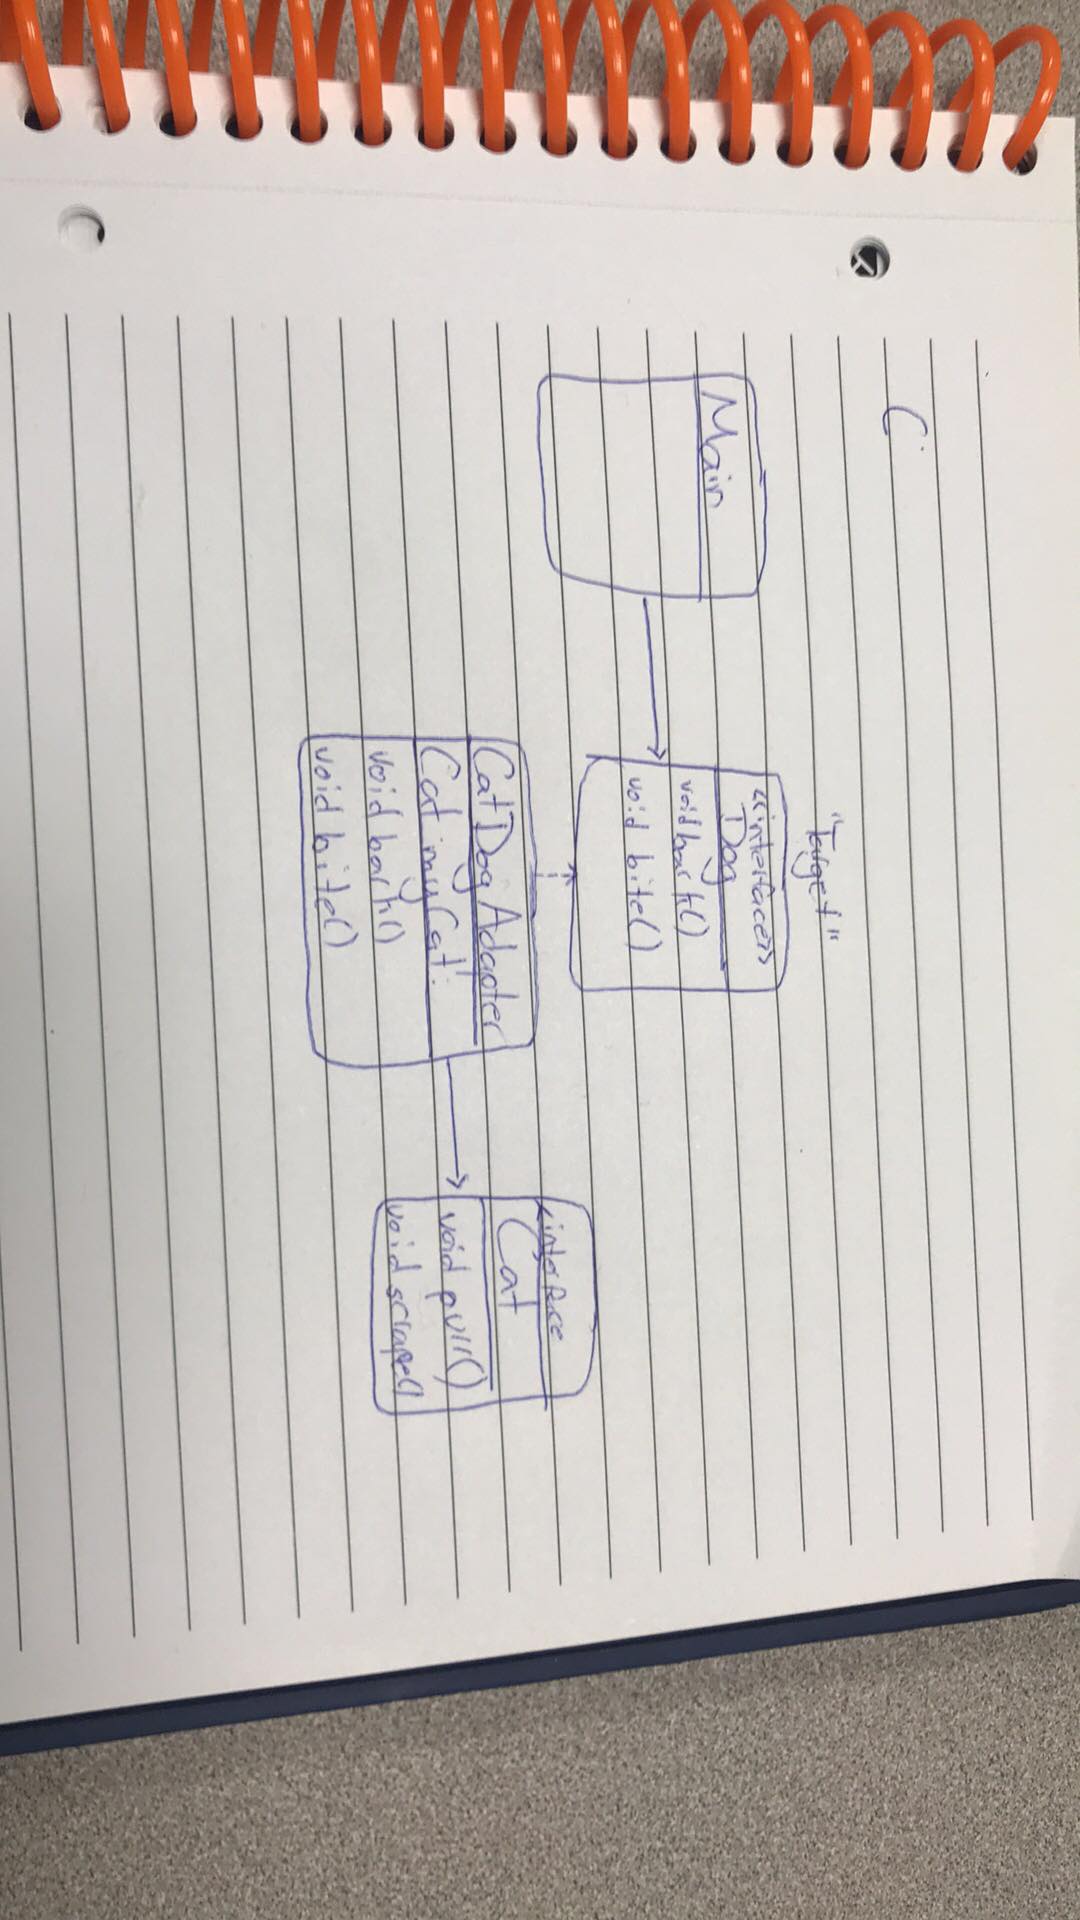 C.
"Target"
Main
<<interface>>
Dog
void bark()
void bite()
CatDogAdapter
Cat myCat;
void bark()
void bite()
<interface
Cat
void purr()
void scrape()